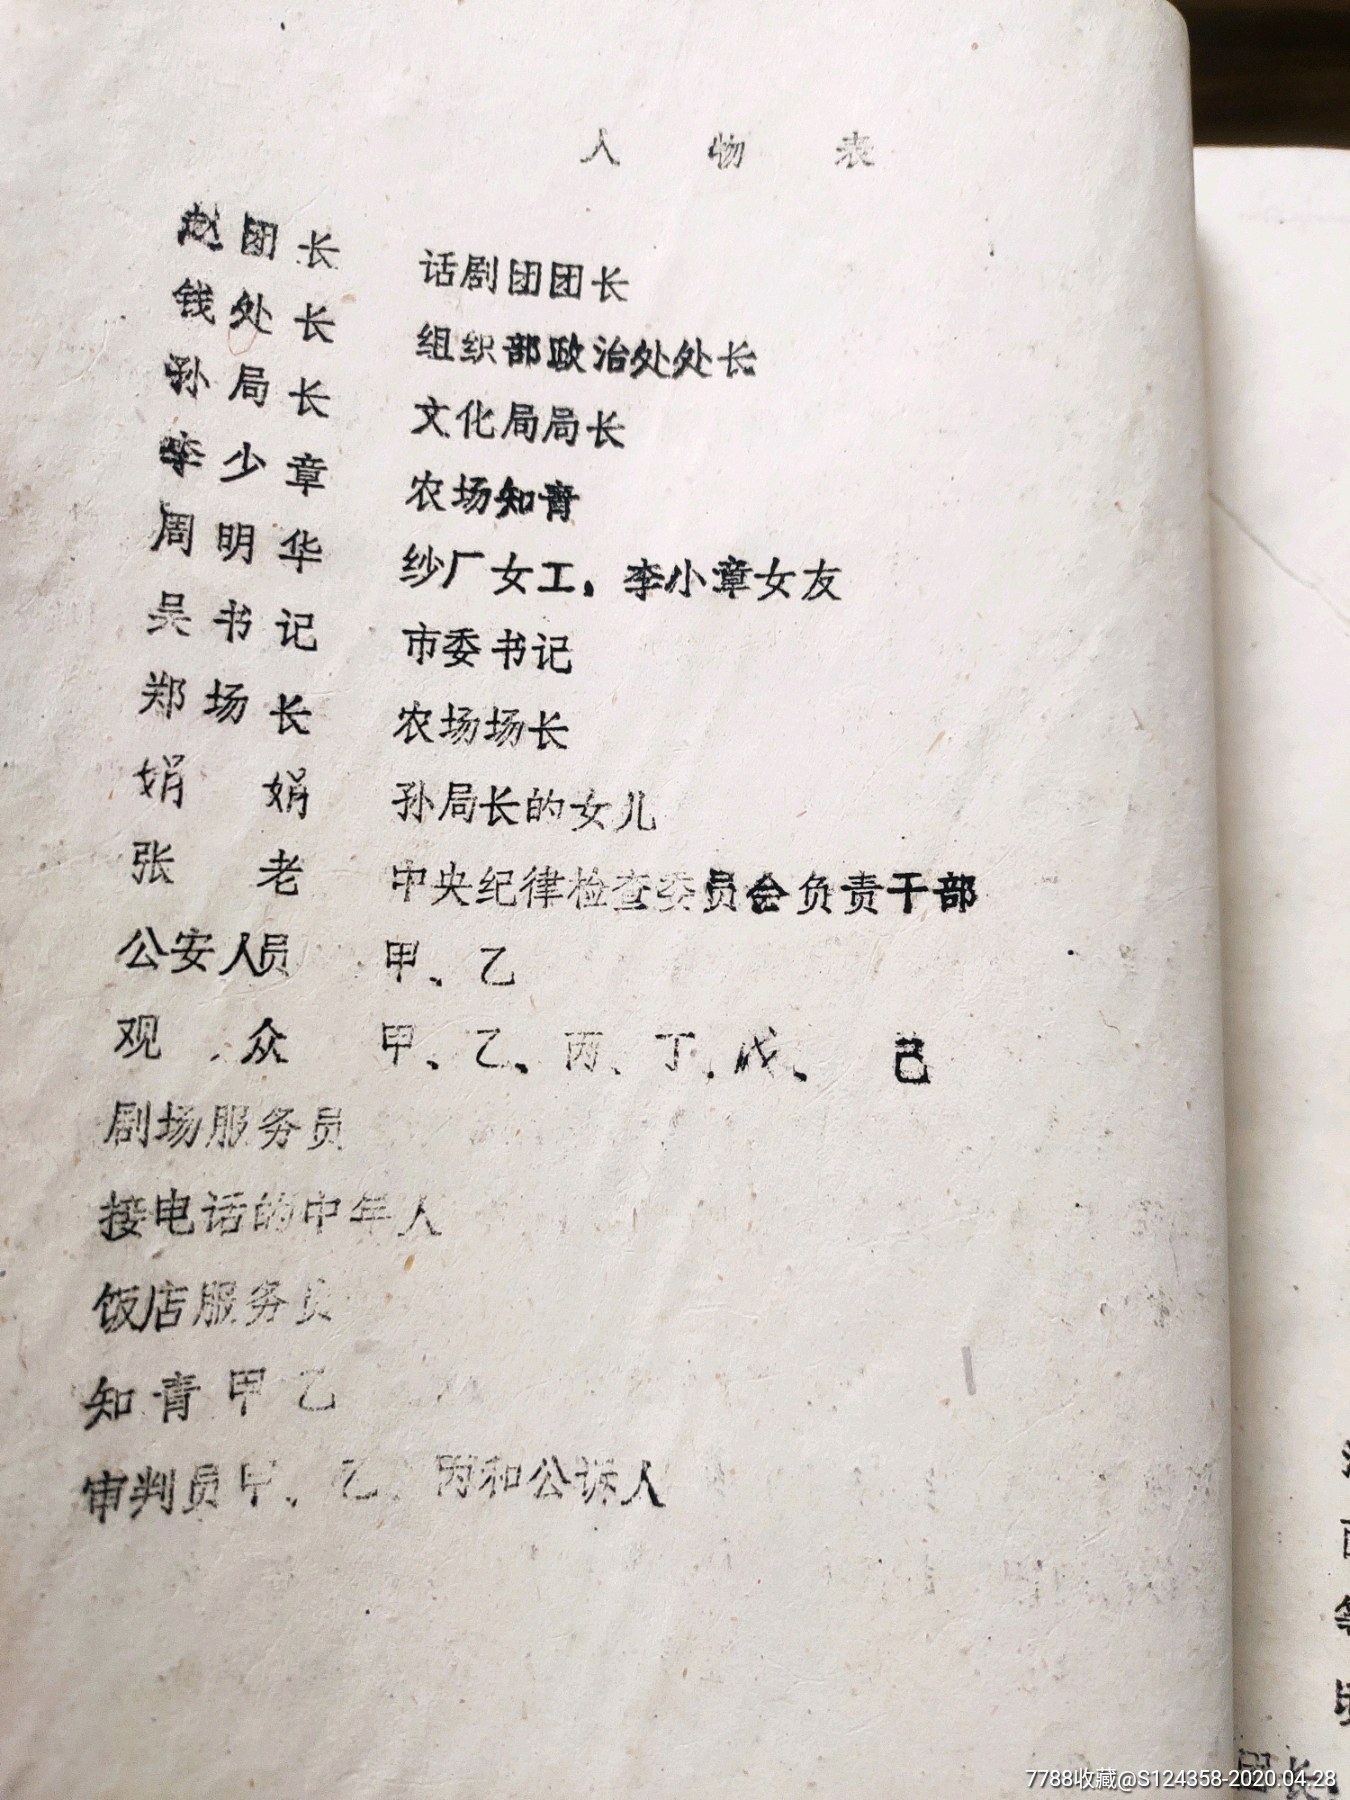 人 物 表
赵团长 话剧团团长
钱处长 组织部政治处处长
孙局长 文化局局长
李少章 农场知青
周明华 纱厂女工，李小章女友
吴书记 市委书记
郑场长 农场场长
娟 娟 孙局长的女儿
张 老 中央纪律检查委员会负责干部
公安人员 甲、乙
观 众 甲、乙、丙、丁、戊、 己
剧场服务员
接电话的中年人
饭店服务员
知青甲乙
审判员甲、乙、丙和公诉人
团长
7788收藏@S124358-2020.04.28